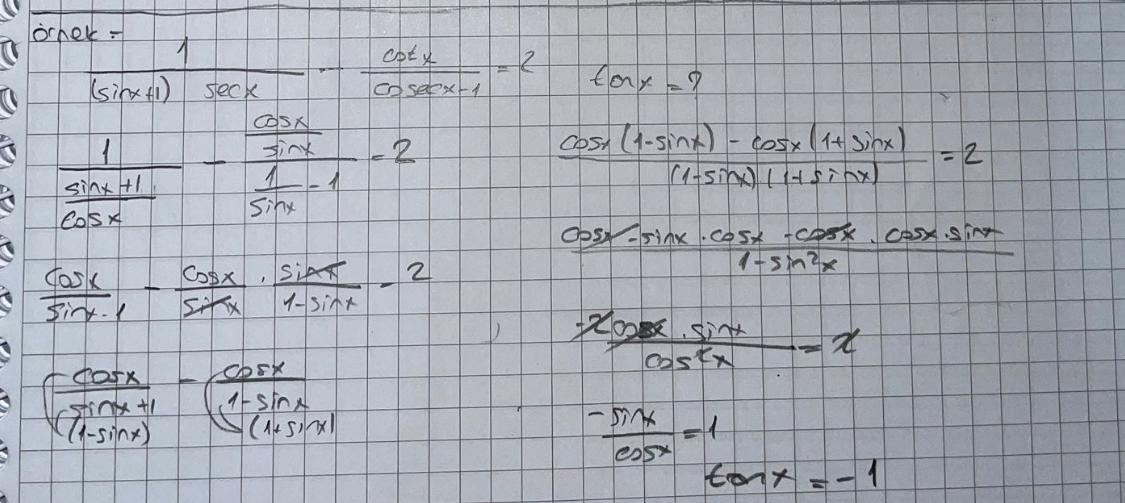 örnek =
1/((sinx+1) secx) - cotx/(cosecx-1) = 2
tanx = ?
1/((sinx+1)/cosx) - (cosx/sinx)/(1/sinx - 1) = 2
cosx/(sinx-1) - cosx/sinx . sinx/(1-sinx) = 2
cosx/(sinx+1) - cosx/(1-sinx)
(1-sinx) (1+sinx)
(cosx (1-sinx) - cosx (1+sinx))/((1-sinx) (1+sinx)) = 2
(cosx - sinx . cosx - cosx . cosx . sinx)/(1-sin²x)
(-2cosx . sinx)/(cos²x) = 2
-sinx/cosx = 1
tanx = -1